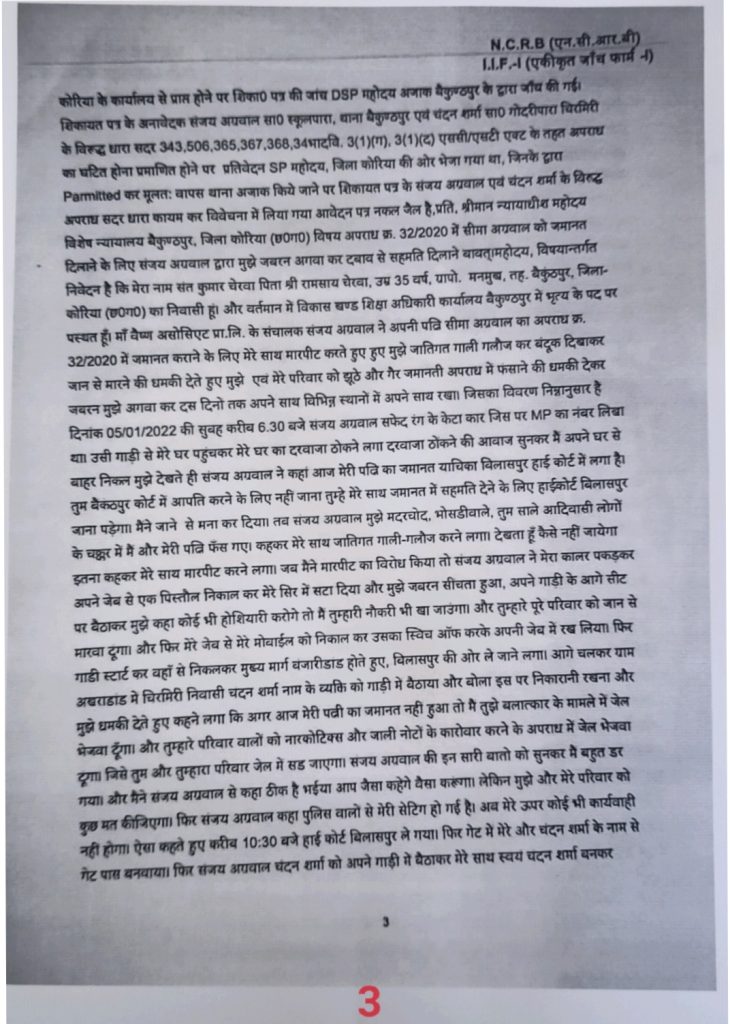 N.C.R.B (एन.सी.आर.बी)
I.I.F.-I (एकीकृत जाँच फार्म -I)
कोरिया के कार्यालय से प्राप्त होने पर शिका0 पत्र की जांच DSP महोदय अजाक बैकुण्ठपुर के द्वारा जाँच की गई।
शिकायत पत्र के अनावेदक संजय अग्रवाल सा0 स्कूलपारा, थाना बैकुण्ठपुर एवं चंदन शर्मा सा0 गोदरीपारा चिरमिरी
के विरूद्ध धारा सदर 343,506,365,367,368,34भादवि. 3(1)(ग), 3(1)(द) एससी/एसटी एक्ट के तहत अपराध
का घटित होना प्रमाणित होने पर प्रतिवेदन SP महोदय, जिला कोरिया की ओर भेजा गया था, जिनके द्वारा
Parmitted कर मूलत: वापस थाना अजाक किये जाने पर शिकायत पत्र के संजय अग्रवाल एवं चंदन शर्मा के विरूद्ध
अपराध सदर धारा कायम कर विवेचना में लिया गया आवेदन पत्र नकल जैल है,प्रति, श्रीमान न्यायाधीश महोदय
विशेष न्यायालय बैकुण्ठपुर, जिला कोरिया (छ0ग0) विषय अपराध क्र. 32/2020 में सीमा अग्रवाल को जमानत
दिलाने के लिए संजय अग्रवाल द्वारा मुझे जबरन अगवा कर दबाव से सहमति दिलाने बावत्।महोदय, विषयान्तर्गत
निवेदन है कि मेरा नाम संत कुमार चेरवा पिता श्री रामसाय चेरवा, उम्र 35 वर्ष, ग्रापो. मनमुख, तह. बैकुंठपुर, जिला-
कोरिया (छ0ग0) का निवासी हूं। और वर्तमान में विकास खण्ड शिक्षा अधिकारी कार्यालय बैकुण्ठपुर में भृत्य के पद पर
पस्थत हूँ। माँ वैष्ण असोसिएट प्रा.लि. के संचालक संजय अग्रवाल ने अपनी पत्नि सीमा अग्रवाल का अपराध क्र.
32/2020 में जमानत कराने के लिए मेरे साथ मारपीट करते हुए हुए मुझे जातिगत गाली गलौज कर बंदूक दिखाकर
जान से मारने की धमकी देते हुए मुझे एवं मेरे परिवार को झूठे और गैर जमानती अपराध में फंसाने की धमकी देकर
जबरन मुझे अगवा कर दस दिनो तक अपने साथ विभिन्न स्थानों में अपने साथ रखा। जिसका विवरण निम्नानुसार है
दिनांक 05/01/2022 की सुबह करीब 6.30 बजे संजय अग्रवाल सफेद रंग के केटा कार जिस पर MP का नंबर लिखा
था। उसी गाड़ी से मेरे घर पहुंचकर मेरे घर का दरवाजा ठोकने लगा दरवाजा ठोंकने की आवाज सुनकर मैं अपने घर से
बाहर निकल मुझे देखते ही संजय अग्रवाल ने कहां आज मेरी पत्नि का जमानत याचिका बिलासपुर हाई कोर्ट में लगा है।
तुम बैकठपुर कोर्ट में आपति करने के लिए नहीं जाना तुम्हे मेरे साथ जमानत में सहमति देने के लिए हाईकोर्ट बिलासपुर
जाना पड़ेगा। मैने जाने से मना कर दिया। तब संजय अग्रवाल मुझे मदरचोद, भोसडीवाले, तुम साले आदिवासी लोगों
के चक्कर में मैं और मेरी पत्नि फँस गए। कहकर मेरे साथ जातिगत गाली-गलौज करने लगा। देखता हूँ कैसे नहीं जायेगा
इतना कहकर मेरे साथ मारपीट करने लगा। जब मैने मारपीट का विरोध किया तो संजय अग्रवाल ने मेरा कालर पकड़कर
अपने जेब से एक पिस्तौल निकाल कर मेरे सिर में सटा दिया और मुझे जबरन सीचता हुआ, अपने गाड़ी के आगे सीट
पर बैठाकर मुझे कहा कोई भी होशियारी करोगे तो मैं तुम्हारी नौकरी भी खा जाउंगा। और तुम्हारे पूरे परिवार को जान से
मारवा दूगा। और फिर मेरे जेब से मेरे मोवाईल को निकाल कर उसका स्विच ऑफ करके अपनी जेब में रख लिया। फिर
गाडी स्टार्ट कर वहाँ से निकलकर मुख्य मार्ग बंजारीडांड होते हुए, बिलासपुर की ओर ले जाने लगा। आगे चलकर ग्राम
अखराडांड में चिरमिरी निवासी चंदन शर्मा नाम के व्यक्ति को गाड़ी में बैठाया और बोला इस पर निकारानी रखना और
मुझे धमकी देते हुए कहने लगा कि अगर आज मेरी पत्नी का जमानत नही हुआ तो मै तुझे बलात्कार के मामले में जेल
भेजवा दूँगा। और तुम्हारे परिवार वालों को नारकोटिक्स और जाली नोटों के कारोवार करने के अपराध में जेल भेजवा
दूगा। जिसे तुम और तुम्हारा परिवार जेल में सड जाएगा। संजय अग्रवाल की इन सारी बातो को सुनकर मैं बहुत डर
गया। और मैने संजय अग्रवाल से कहा ठीक है भईया आप जैसा कहेगे वैसा करूगा। लेकिन मुझे और मेरे परिवार को
कुछ मत कीजिएगा। फिर संजय अग्रवाल कहा पुलिस वालों से मेरी सेटिग हो गई है। अब मेरे ऊपर कोई भी कार्यवाही
नही होगा। ऐसा कहते हुए करीब 10:30 बजे हाई कोर्ट बिलासपुर ले गया। फिर गेट में मेरे और चंदन शर्मा के नाम से
गेट पास बनवाया। फिर संजय अग्रवाल चंदन शर्मा को अपने गाड़ी मे बैठाकर मेरे साथ स्वय चंदन शर्मा बनकर
3
3